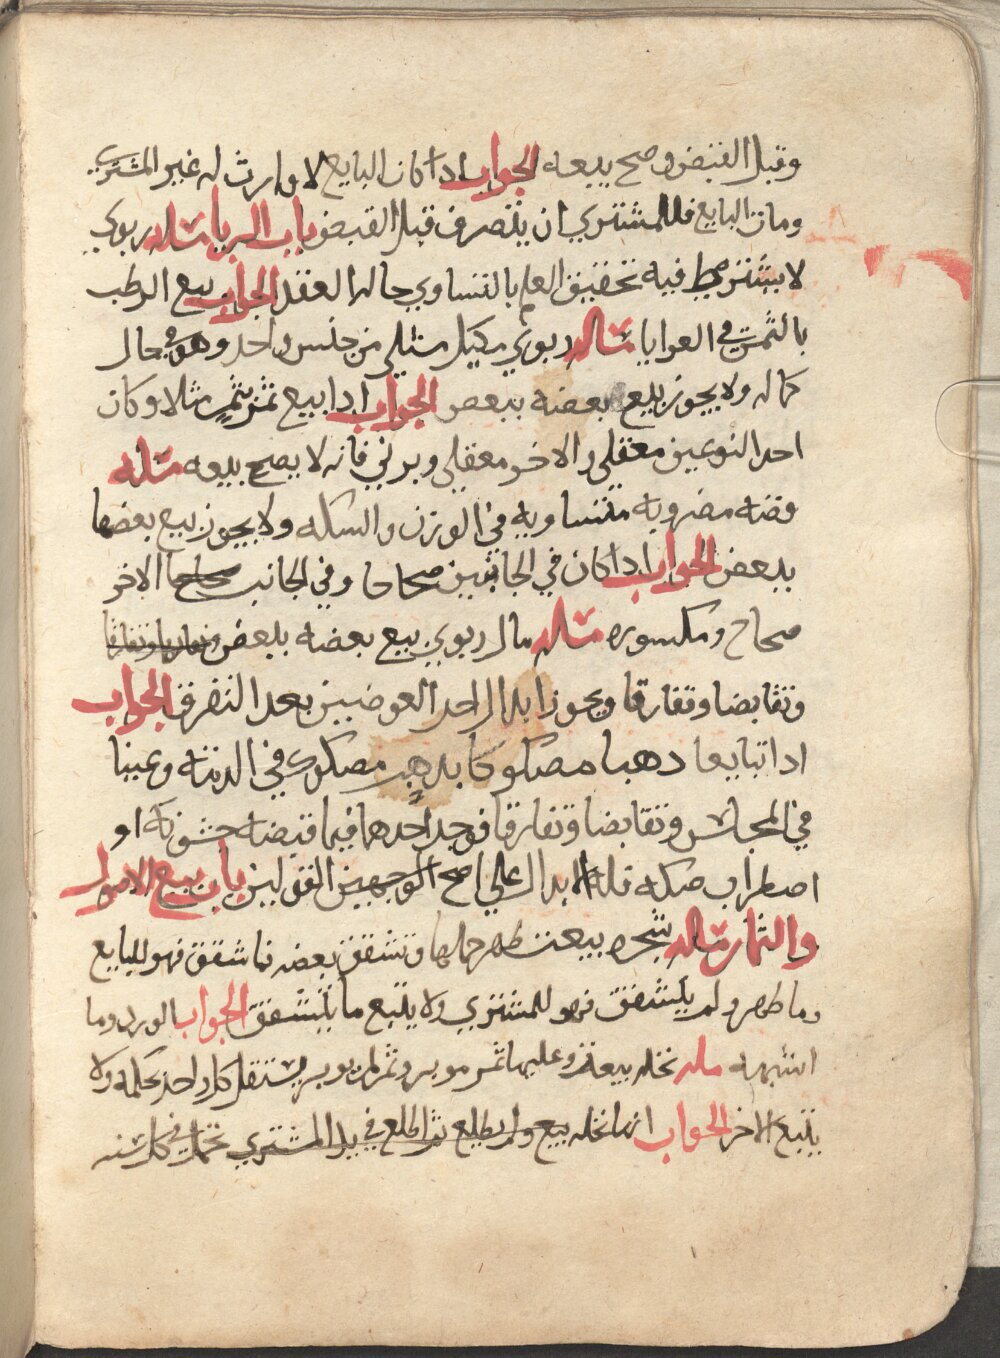 وقبل القبض وصح بيعه الجواب اذا كان البايع لا وارث له غير المشتري
ومات البايع فللمشتري ان يتصرف قبل القبض باب الربا مسله ربوي
لا يشترط فيه تحقيق العلم بالتساوي حالة العقد الجواب بيع الرطب
بالتمر في العرايا مساله ربوي مكيل مثلي من جنس واحد وهو في حال
كماله ولا يجوز بيع بعضه ببعض الجواب اذا بيع تمر بتمر مثلا وكان
احد النوعين معقلي والاخر معقلي وبرني فانه لا يصح بيعه مسله
وفضه مضروبه متساويه في الوزن والسكه ولا يجوز بيع بعضها
ببعض الجواب اذا كان في الجانبين صحاحا وفي الجانب الاخر
صحاح ومكسوره مساله مال ربوي بيع بعضه ببعض
وتقابضا وتفارقا ويجوز ابدال احد العوضين بعد التفرق الجواب
اذا تبايعا دهبا مصكوكا بدهب مصكوك في الذمة وعينا
في المجلس وتقابضا وتفارقا فوجد احدهما فيما قبضه خشونه او
اصطراب صكه فله الابدال علي اصح القولين باب بيع الاصول
والثمار مساله شجره بيعت ظهر حملها وتشقق بعضه فما شقق فهو للبايع
وما ظهر ولم يتشقق فهو للمشتري ولا يتبع ما يتشقق الجواب الورد وما
اشبهه مسله نخله بيعت وعليها ثمر موبر وثمر لم يوبر يستقل كل واحد بحكمه ولا
يتبع الاخر الجواب انها نخله بيع ولم يطلع ثم اطلع في يد المشتري تحمل في كل سنه